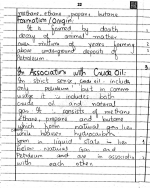 methane, ethane, propane, butane
Formation/Origin:
It is formed by death
decay of animal matter
over millions of years forming
above underground deposits of
Petroleum.
In Association with Crude Oil:
In strict sense, crude oil include
only petroleum but in common
usage it include both
crude oil and natural
gas. It consists of methane
ethane, propane and butane
which form natural gas
heavier hydrocarbon
form in liquid state
below natural gas
Petroleum and are in association
with each other.